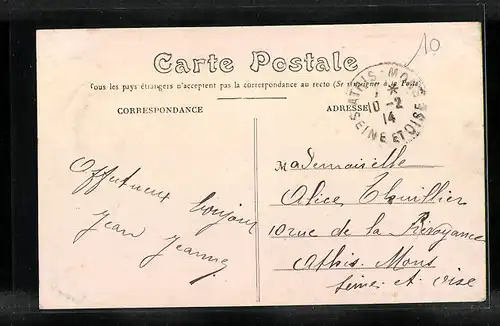 10
Carte Postale
Tous les pays étrangers n'acceptent pas la correspondance au recto (Se renseigner à la Poste)
CORRESPONDANCE
ADRESSE
ATHIS-MONS
10-2
14
SEINE ET OISE
Affectueux bonjour
Jean Jeanne
Mademoiselle
Alice Thuillier
10 rue de la Prévoyance
Athis-Mons
Seine et Oise